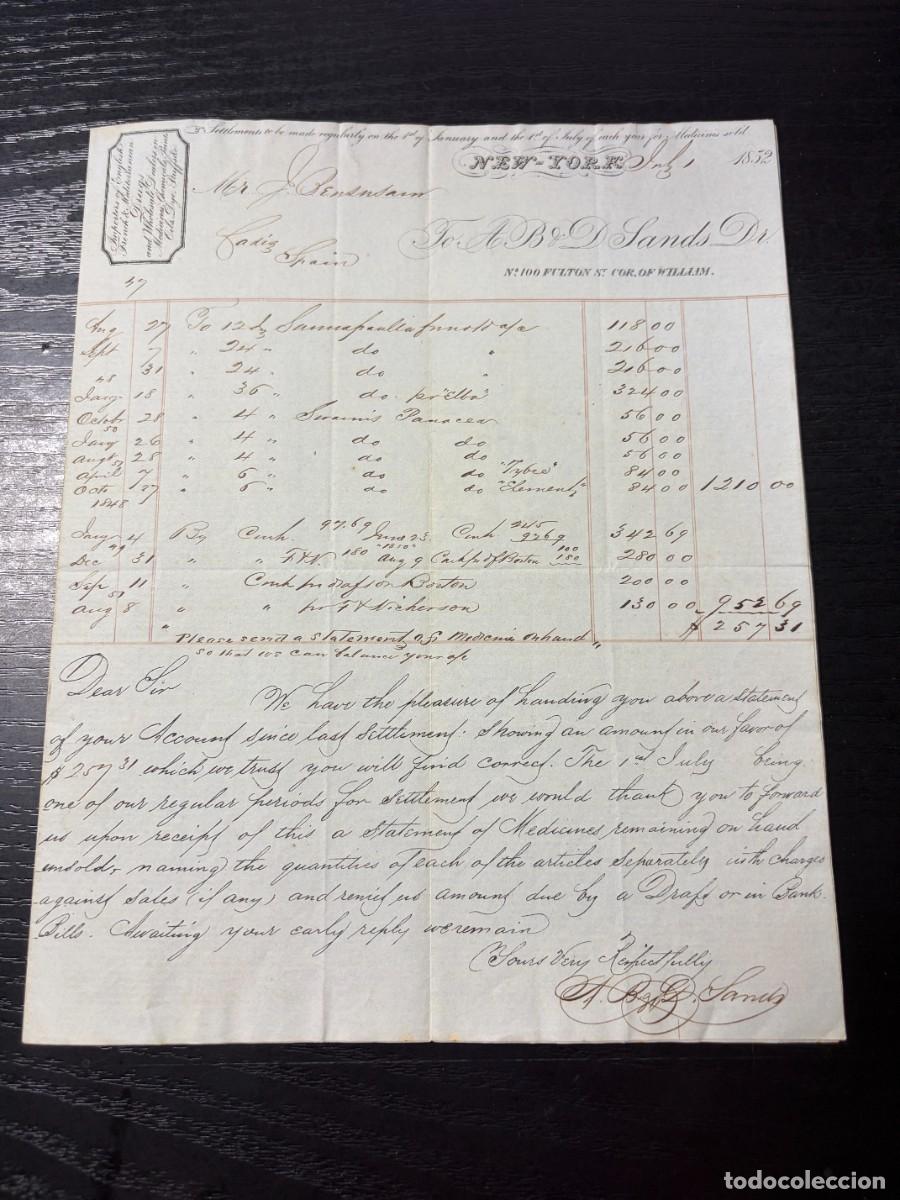 Settlements to be made regularly on the 1st of January and the 1st of July of each year for Medicines sold
Importers of English,
French & Mediterranean
Drugs
and Wholesale Dealers in
NEW-YORK July 1 1852
Mr J.
Cadiz
Spain
To A B & D Sands Dr.
No. 100 FULTON St. COR. OF WILLIAM.
47
Aug 27 To 12 dz Sarsaparilla a/c 118 00
Sept 7 " 24 " do " 216 00
" 31 " 24 " do " 216 00
48
Jany 18 " 36 " do pr "Elba" 324 00
Octobr 28 " 4 " Swaim's Panacea 56 00
50
Jany 26 " 4 " do do 56 00
Augt 28 " 4 " do do 56 00
52
April 7 " 6 " do do "Tybee" 84 00
Octo 27 " 6 " do do "Element" 84 00 1210 00
1848
Jany 4 By Cash 97.69 June 23 Cash 245 97 69 342 69
49
Dec 31 " " F & N 180 Aug 9 Cash pr df on Boston 100 180 280 00
Sep 11 Cash pr draft on Boston 200 00
51
Aug 8 " " pr F & Nickerson 130 00 952 69
$ 257 31
"Please send a statement of Medicine on hand
so that we can balance your a/c"
Dear Sir We have the pleasure of handing you above a statement
of your Account since last Settlement: Showing an amount in our favor of
$257 31 which we trust you will find correct. The 1st July being
one of our regular periods for Settlement we would thank you to forward
us upon receipt of this a Statement of Medicines remaining on hand
unsold, naming the quantities of each of the articles Separately with charges
against Sales (if any) and remit us amount due by a Draft or in Bank
Bills. Awaiting your early reply we remain
Yours Very Respectfully
A. B. & D. Sands
todocoleccion